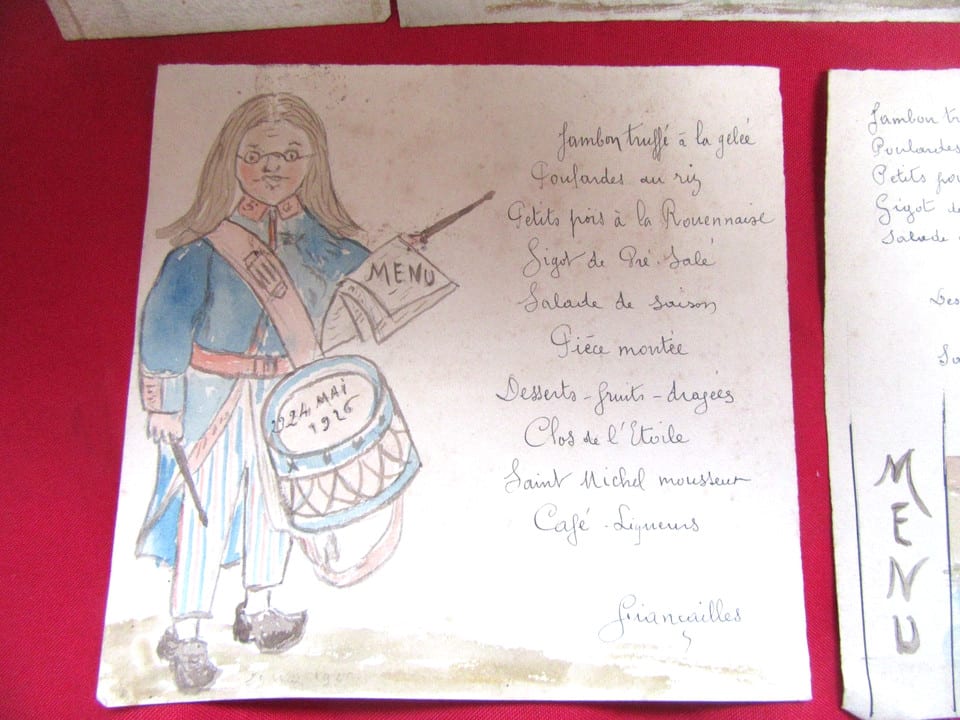 Jambon truffé à la gelée
Poulardes au riz
Petits pois à la Rouennaise
Gigot de Pré-Salé
Salade de saison
Pièce montée
Desserts - fruits - dragées
Clos de l'Etoile
Saint Michel mousseux
Café - Liqueurs
MENU
24 MAI
1926
Jambon
Poulardes
Petits
Gigot
Salade
MENU